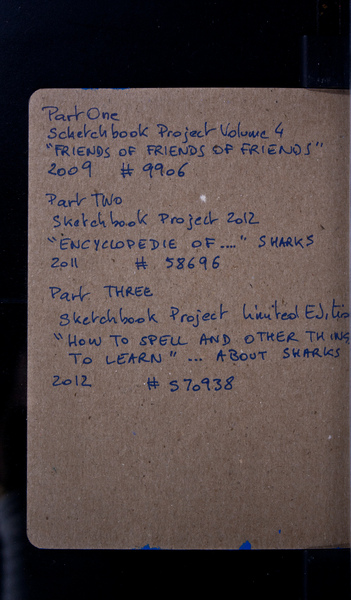 Part One
Schetchbook Project Volume 4
"FRIENDS OF FRIENDS OF FRIENDS"
2009 # 9906
Part TWO
Sketchbook Project 2012
"ENCYCLOPEDIE OF...." SHARKS
2011 # 58696
Part THREE
Sketchbook Project limited Editio
"HOW TO SPELL AND OTHER THING
TO LEARN" ... ABOUT SHARKS
2012 # 570938